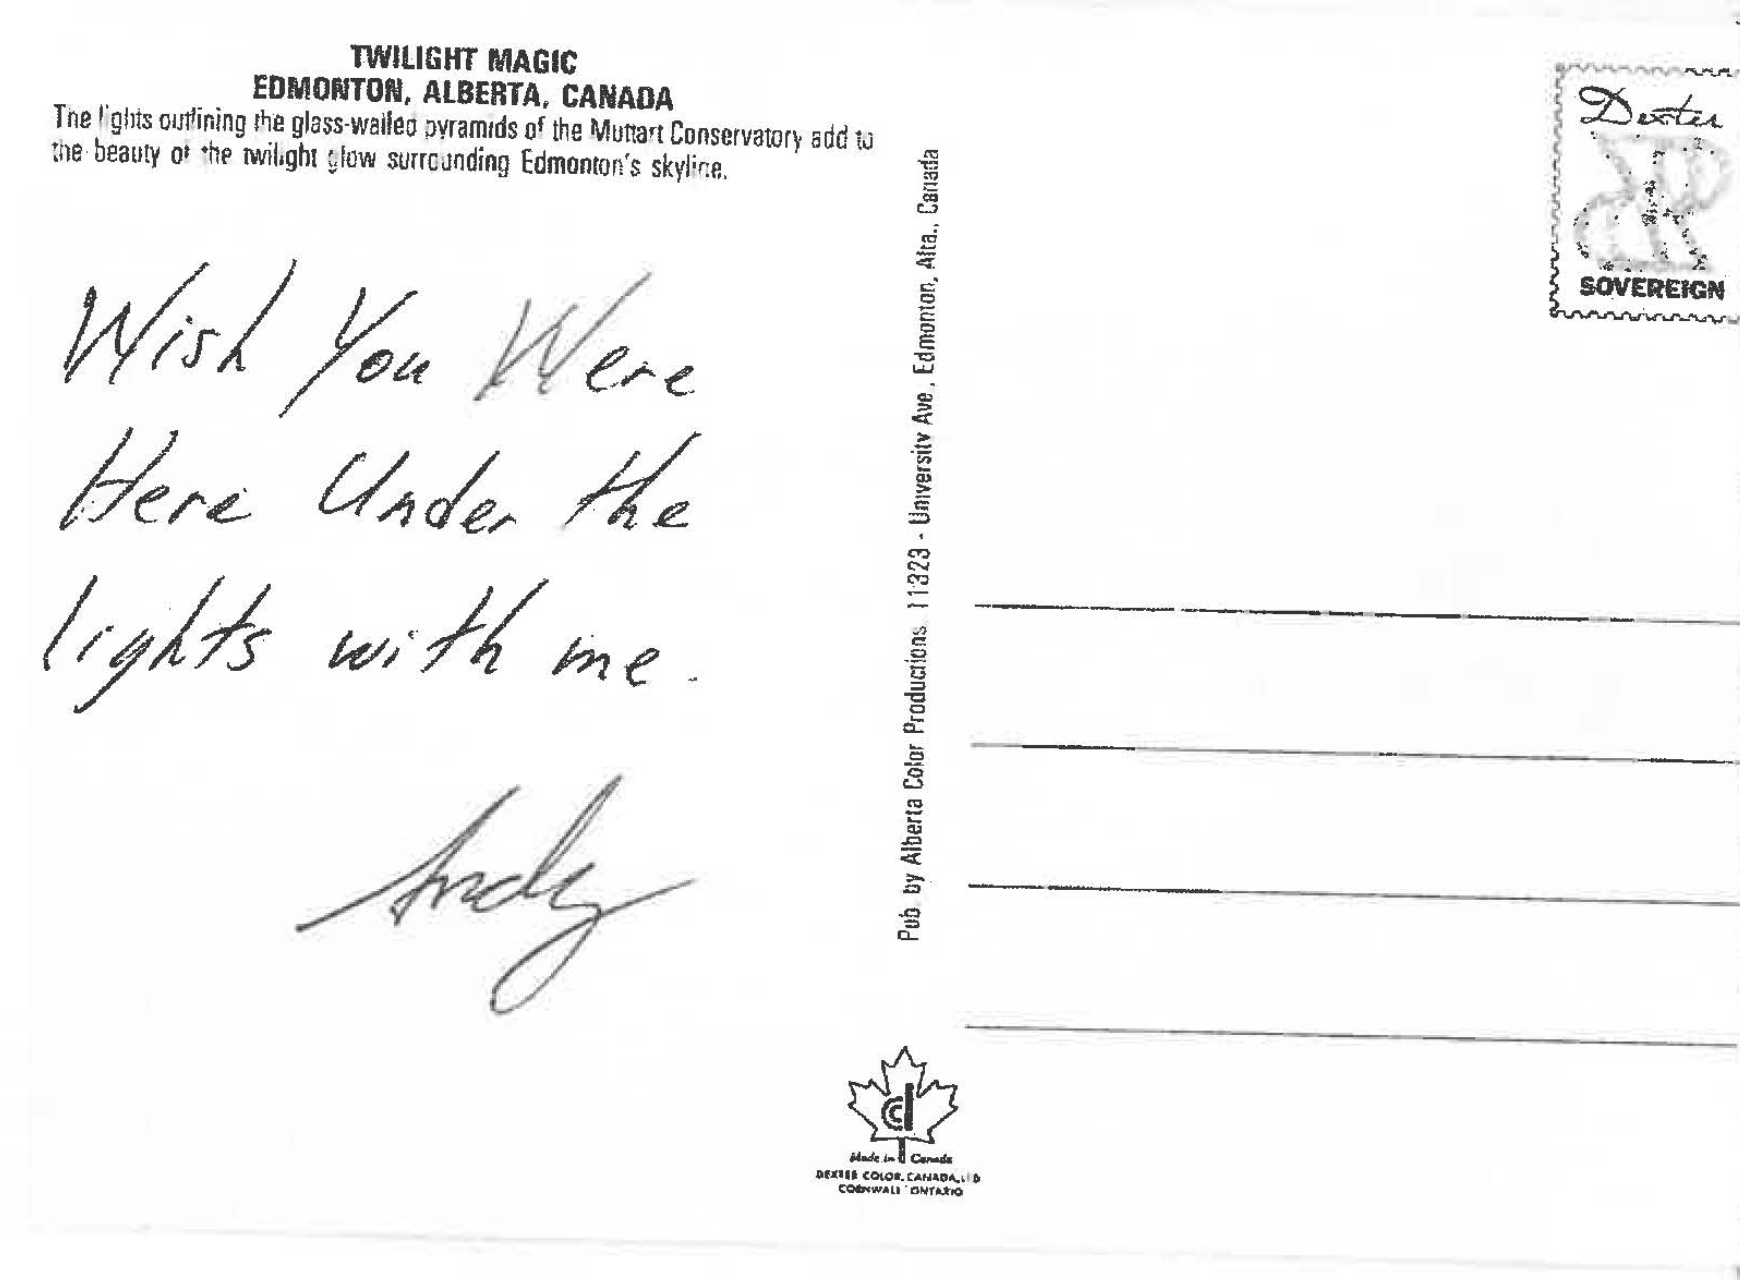 TWILIGHT MAGIC
EDMONTON, ALBERTA, CANADA
The lights outlining the glass-walled pyramids of the Muttart Conservatory add to
the beauty of the twilight glow surrounding Edmonton's skyline.
Wish You Were
Here Under the
lights with me.
Andy
Pub. by Alberta Color Productions 11323 - University Ave., Edmonton, Alta., Canada
Dexter
SOVEREIGN
cd
Made in Canada
DEXTER COLOR, CANADA, LTD
CORNWALL ONTARIO